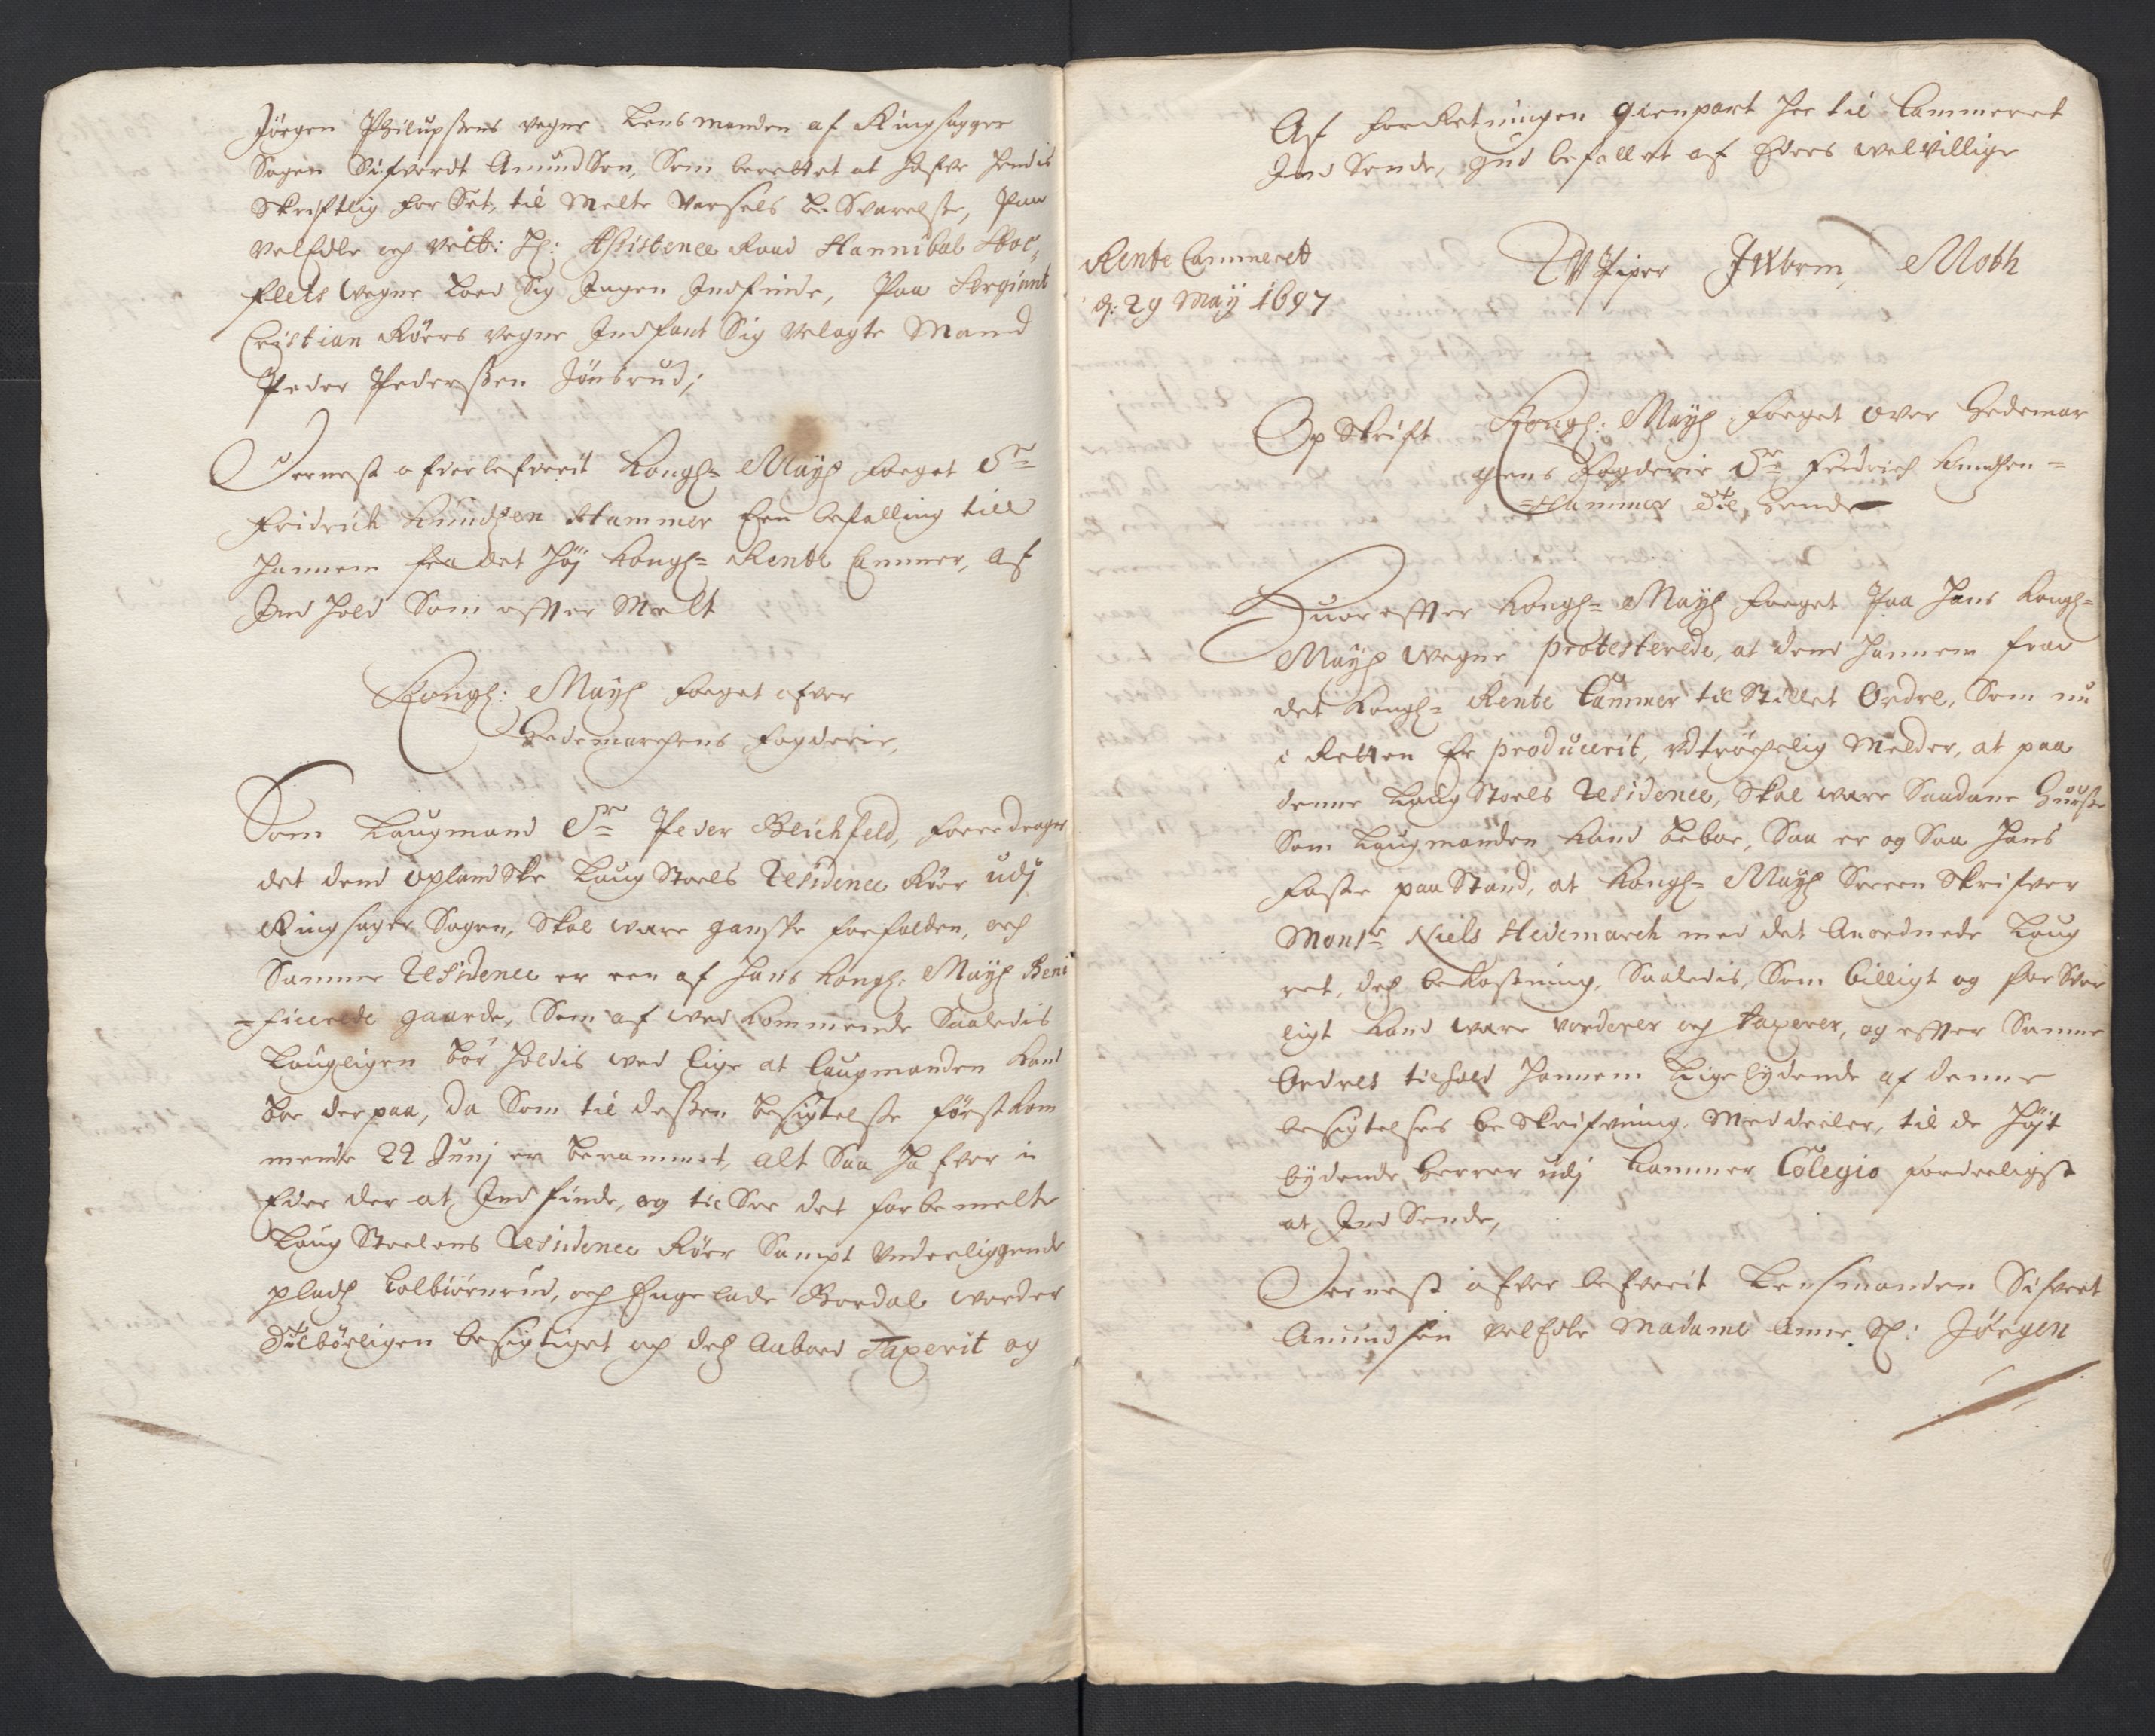 Jörgen Philupsens vegne Lensmanden af Ringsagger
Sogen Sifverdt AmundSen, Som berettet at hafve hendis
Skriftlig forSet, til Melte Varsels beSvarelse, Paa
Velædle og Velb: H: Assistence Raad Hannibal Stoc,
flets Vegne Loed Sig Ingen Indfinde, Paa Serginnt
Cristian Röers vegne Indfant Sig Velagte Mand
Peder Pedersen Jönsrud;
Dernest ofverlefverit Kongl= Mayts foeget Sr=
Fridrich Knudsen Hammer Een befalling till
hannem fra det höj Kongl= Rente Cammer, af
Indhold Som efter Melt
Kongl: Mayts foeget ofver
Hedemarchens fogderie,
Som Laugmand Sr= Peder Beichfeld, foeredrager
det dend oplandSke LaugStoels Residence Röer udj
Ringsager Sogen, Skal være ganske forfalden, och
Samme Residence er een af hans Kongl: Mayts Beni
=ficerede gaarde, Som af vedkommende Saaledis
Laugligen bör holdis ved lige at laugmanden kand
boe derpaa, da Som til dessen besigtelse förstkom
mende 22 Junj er berammet, alt Saa hafver i
Eder der at Indfinde, og tilSee det forbemelte
LaugStoelens Residence Röer Sampt Underliggende
pladtz Kolbiörnrud, och Engelade Bordal vorder
Tilbörligen besigtiget och dets Aaboed Taxerit og
Af forRetningen gienpart her til Cammeret
IndSende, Gud befallet af Eders velvillige
Rente Cammeret
d: 29 Maÿ 1697
W Piper JWbrm, Moth
OpSkrift Kongl: Mayts foeget over Hedemar
chens Fogderie Sr= Fridrich Knudsen=
=Hammer Til hende
Huorefter Kongl= Mayts foeget Paa Hans Kongl=
Mayts vegne protesterede, at dend hannem fraa
det Kongl= Rente Cammer tilStillet Ordre, Som nu
i Retten Er producerit, udtröchelig Melder, at paa
denne LaugStoels Residence, Skal være Saadane Huusse
Som Laugmanden kand beboe, Saa er og Saa hans
faste paaStand, at Kongl= Mayts SorenSkrifver
Monsr Niels Hedemarch med det Anordnede Laug
ret, dets bekostning, Saaledis, Som billigt og forSvar
ligt kand være vorderer och Taxerer, og efter Samme
Ordres tilhold hannem Ligelydende af denne
besigtelses beSkrifvning, Meddeeler, til de höjt
bydende Herrer udj Cammer Colegio forderligst
at IndSende,
Dernest ofverlefverit Lensmanden Sifvert
Amundsen Velædle Madame Anne Sl: Jörgen